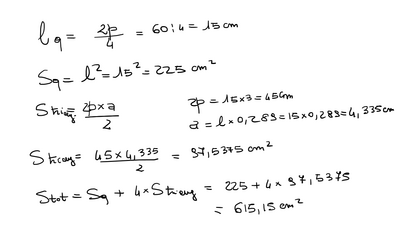 l q = 2p / 4 = 60:4 = 15 cm
Sq = l² = 15² = 225 cm²
Striang. = 2p x a / 2 2p = 15x3 = 45cm
a = l x 0,289 = 15 x 0,289 = 4,335 cm
Striang = 45 x 4,335 / 2 = 97,5375 cm²
Stot = Sq + 4 x Striang = 225 + 4 x 97,5375
= 615,15 cm²